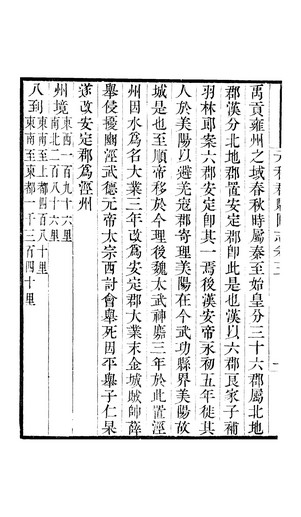 元和郡縣圖志卷三
禹貢雍州之域春秋時屬秦至始皇分三十六郡屬北地
郡漢分北地郡置安定郡卽此是也漢以六郡良家子補
羽林郎案六郡安定卽其一焉後漢安帝永初五年徙其
人於美陽以避羌寇郡寄理美陽在今武功縣界美陽故
城是也至順帝移於今理後魏太武神䴥三年於此置涇
州因水爲名大業三年改爲安定郡大業末金城賊帥薛
舉侵擾幽涇武德元帝太宗西討會舉死因平舉子仁杲
遂改安定郡爲涇州
州境東西一百九十六里
南北二百八十六里
八到東南至上都四百八十里
東南至東都一千三百四十里